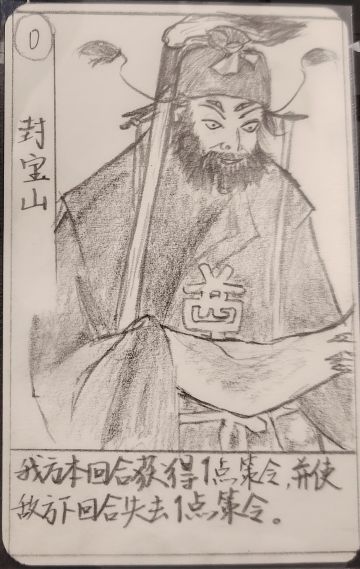 0
封宝山
我方本回合获得1点策令,并使
敌方下回合失去1点策令。